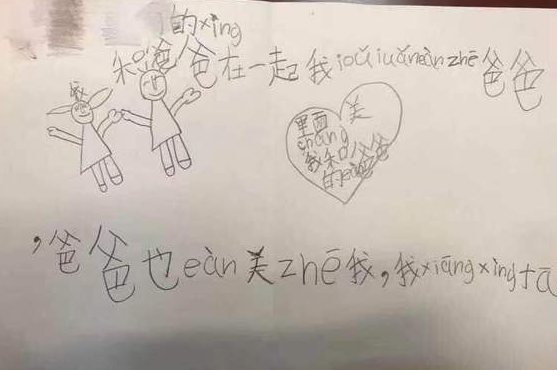 的xíng
和爸爸在一起我ioǔiuǎneànzhē爸爸
我
里面 美
chāng
我和爸爸
的
，爸爸也eàn美zhē我，我xiāngxìngtā